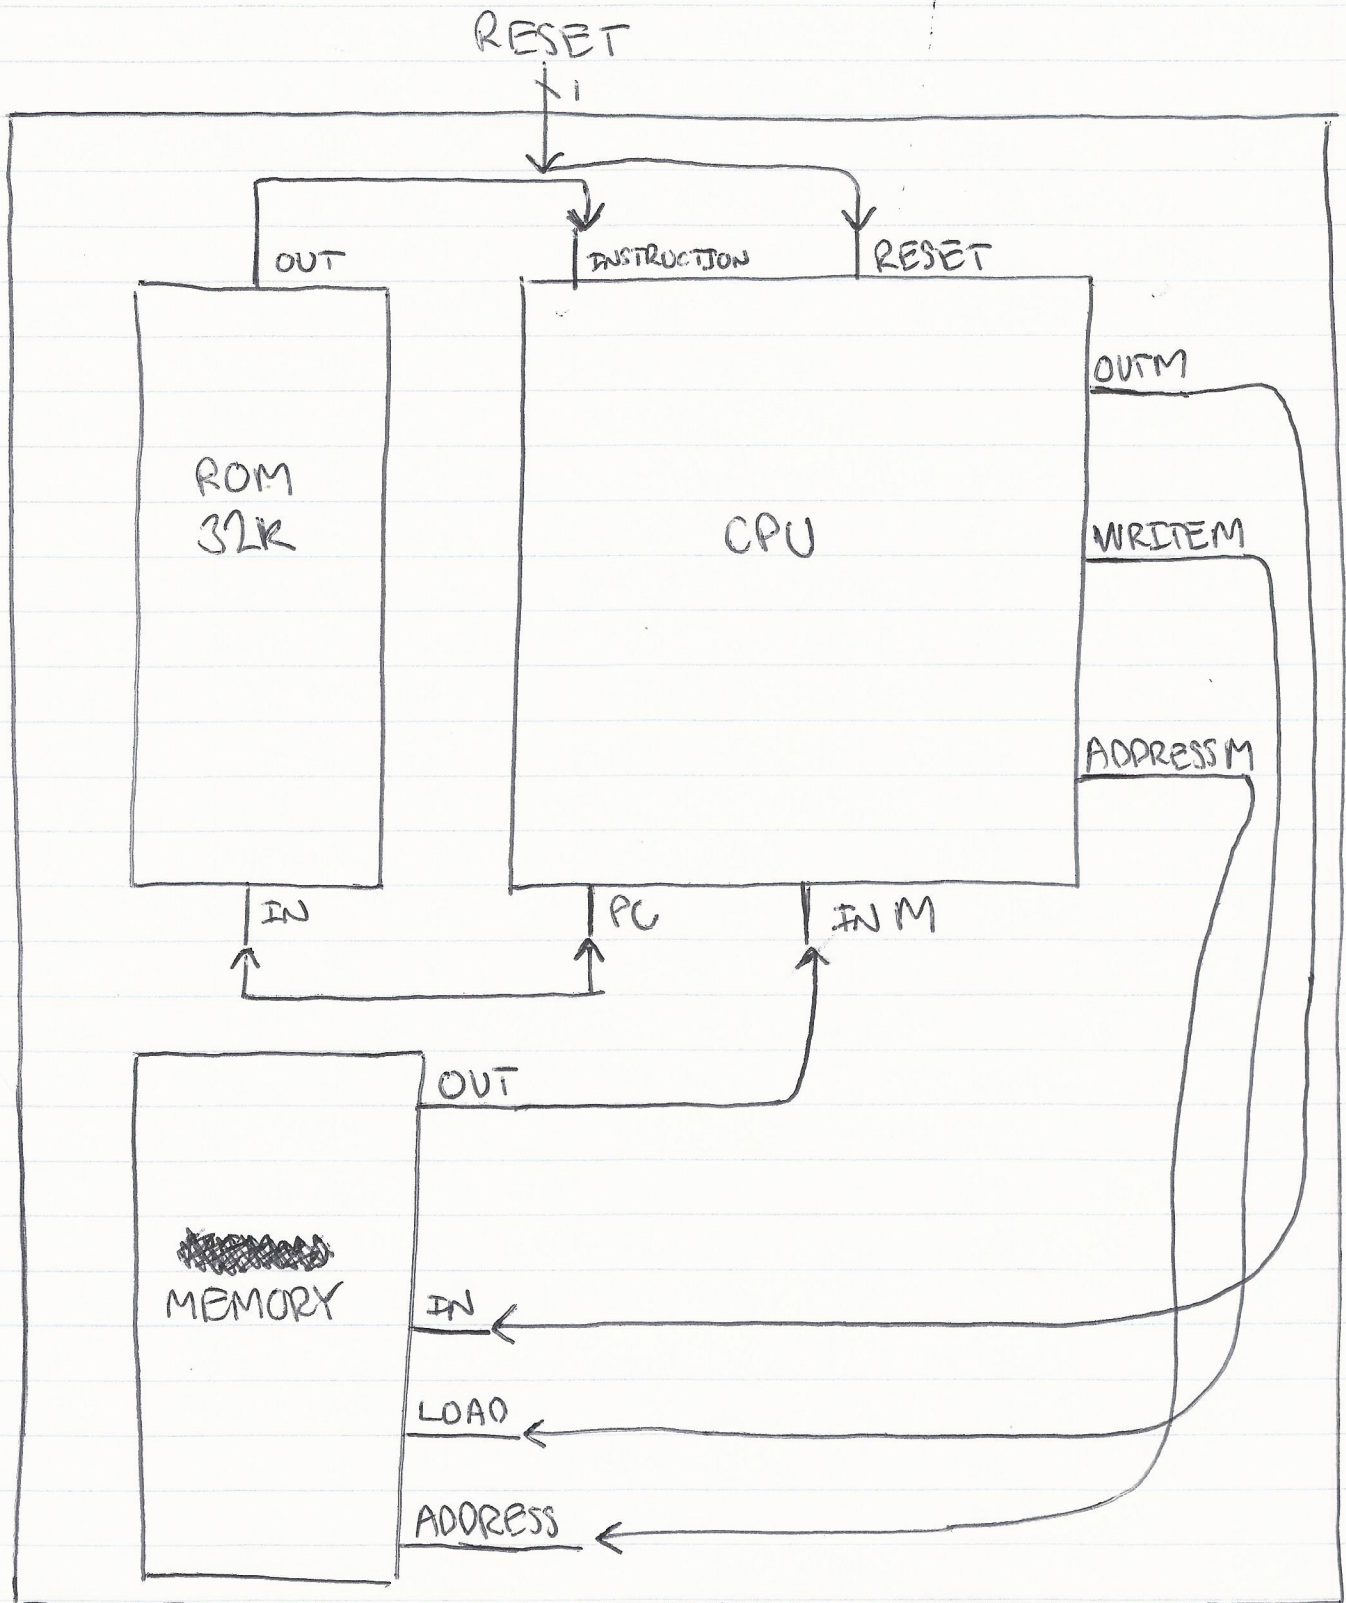 RESET
1
OUT
INSTRUCTION
RESET
OUTM
ROM
32K
CPU
WRITEM
ADDRESSM
IN
PC
IN M
OUT
MEMORY
IN
LOAD
ADDRESS